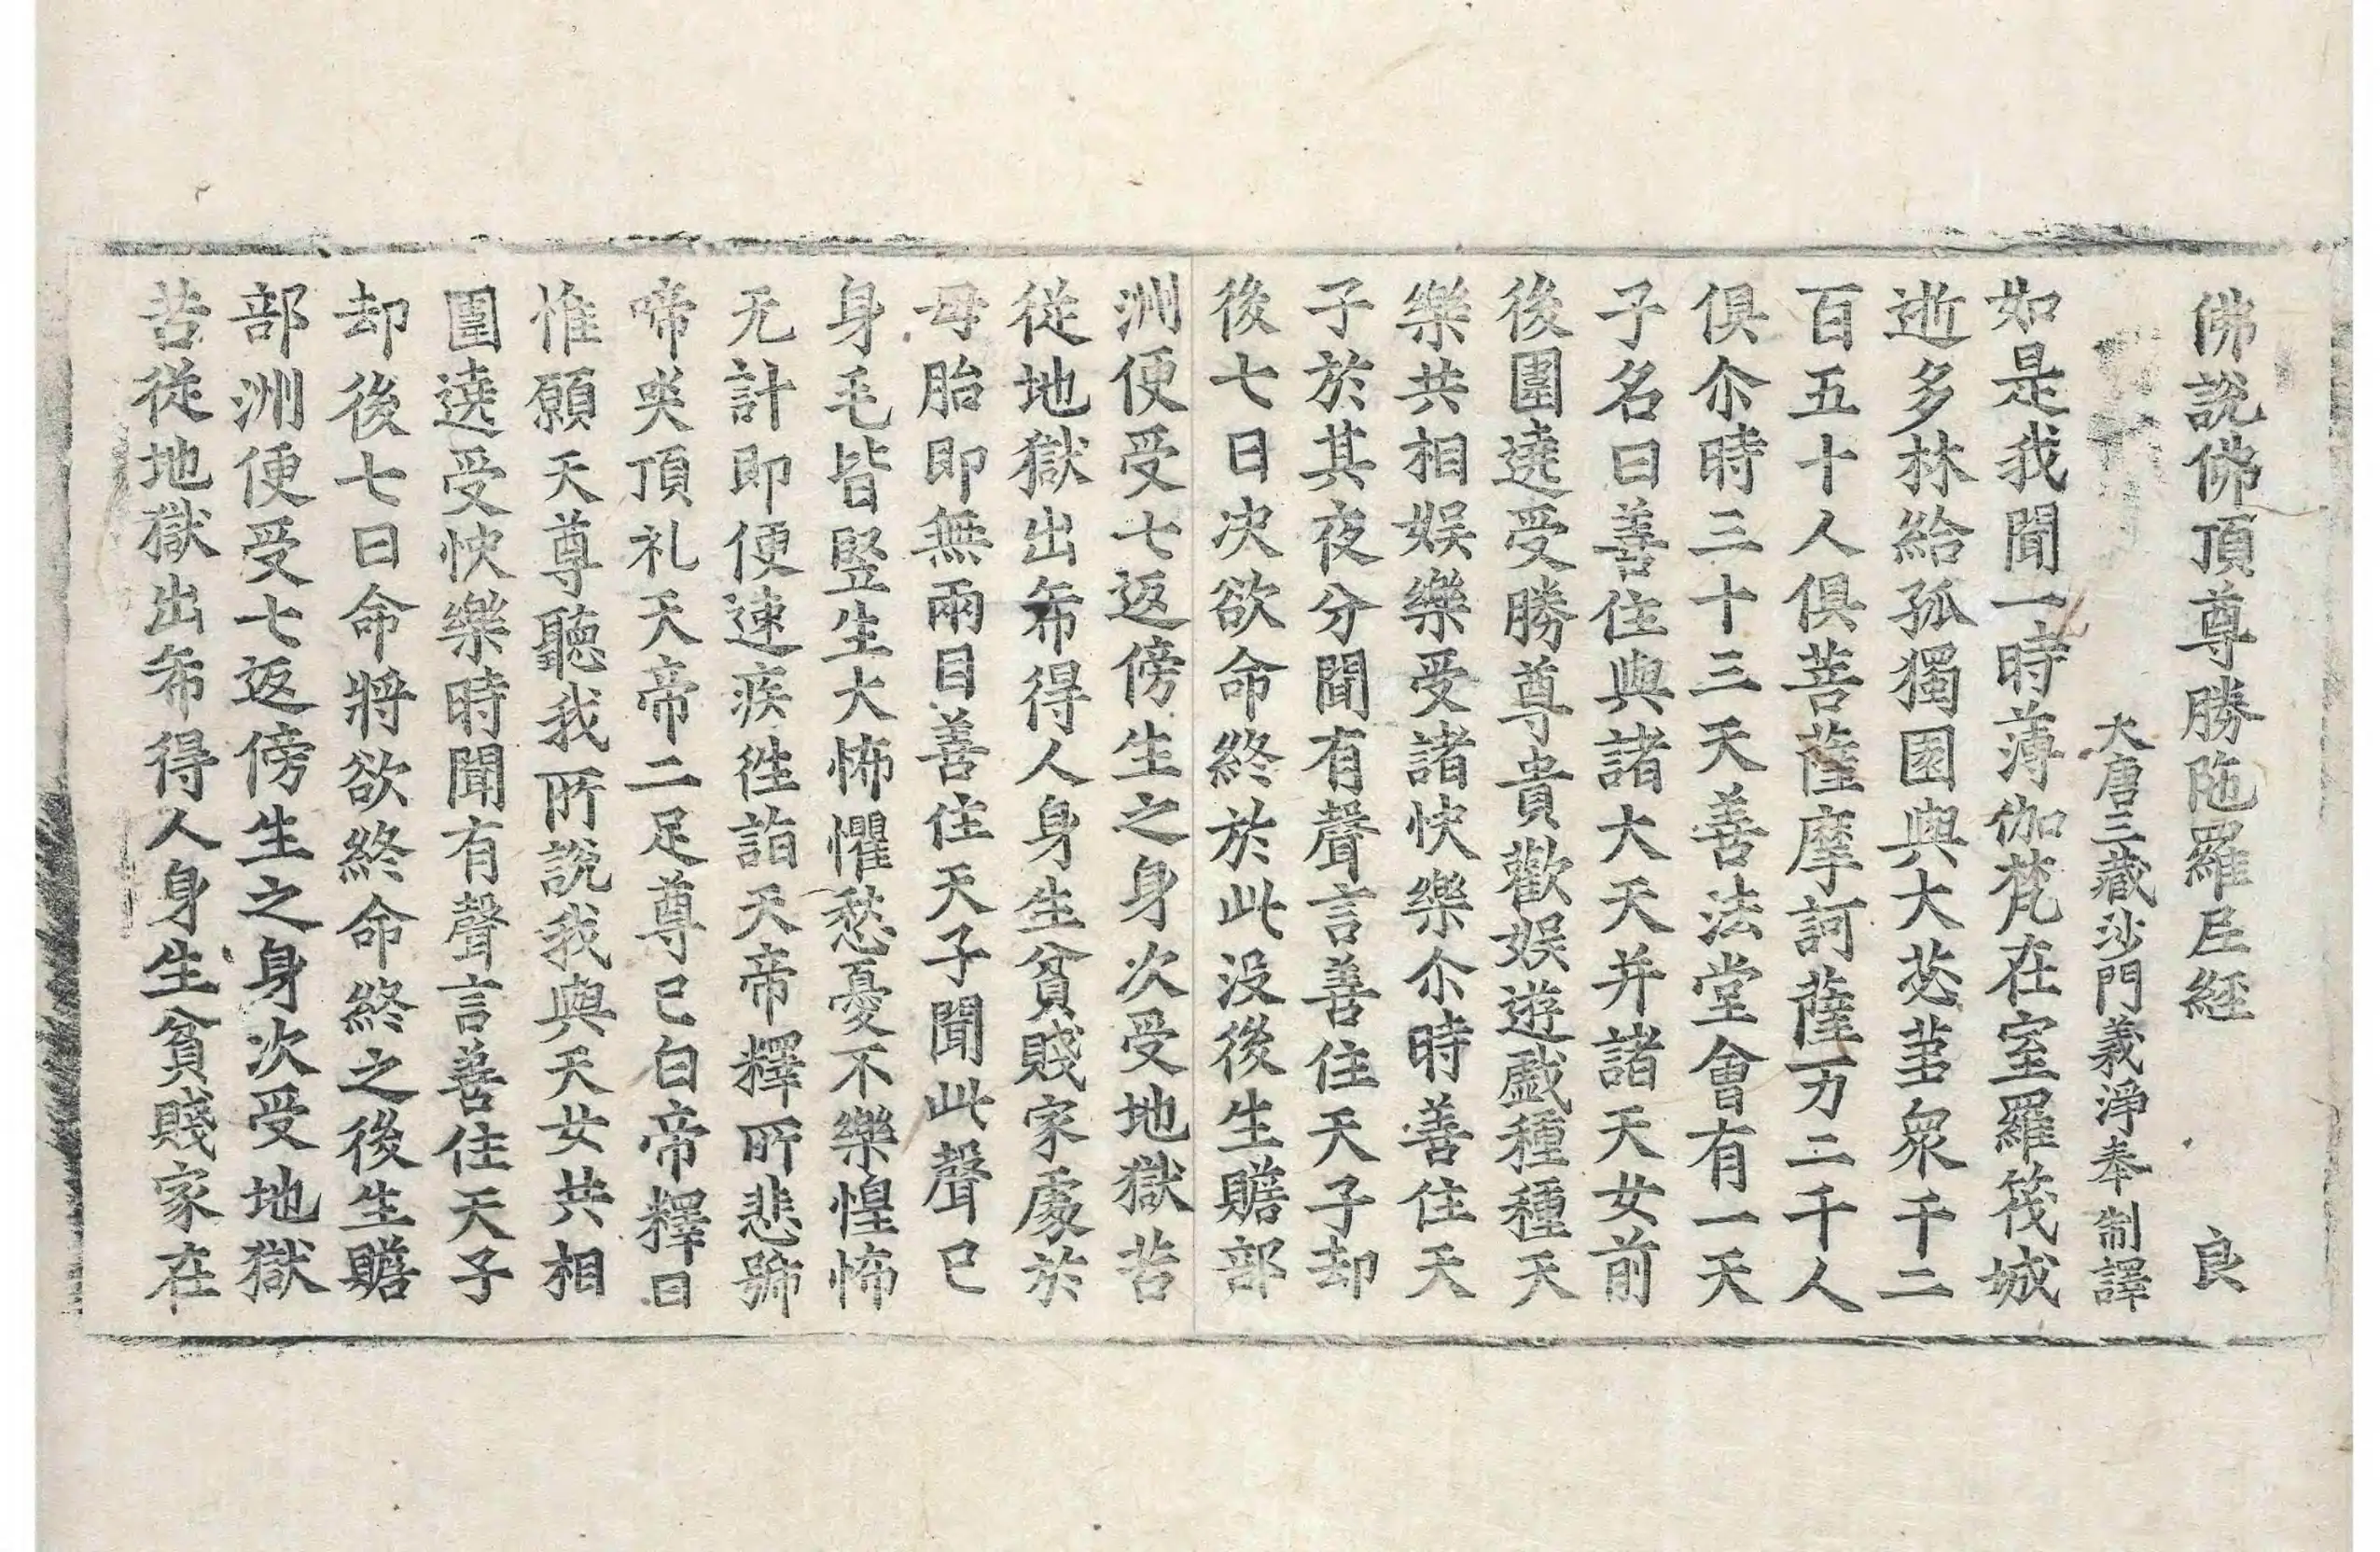 佛說佛頂尊勝陁羅尼經　良
大唐三藏沙門義淨奉 制譯
如是我聞一時薄伽梵在室羅筏城
逝多林給孤獨園與大苾蒭衆千二
百五十人俱菩薩摩訶薩万二千人
俱尒時三十三天善法堂會有一天
子名曰善住與諸大天并諸天女前
後圍遶受勝尊貴歡娛遊戯種種天
樂共相娛樂受諸快樂尒時善住天
子於其夜分聞有聲言善住天子却
後七日決欲命終於此没後生贍部
洲便受七返傍生之身次受地獄苦
從地獄出希得人身生貧賤家處於
母胎即無兩目善住天子聞此聲已
身毛皆竪生大怖懼愁憂不樂惶怖
无計即便速疾徃詣天帝釋所悲號
啼哭頂礼天帝二足尊已白帝釋曰
惟願天尊聽我所說我與天女共相
圍遶受快樂時聞有聲言善住天子
却後七日命將欲終命終之後生贍
部洲便受七返傍生之身次受地獄
苦從地獄出希得人身生貧賤家在